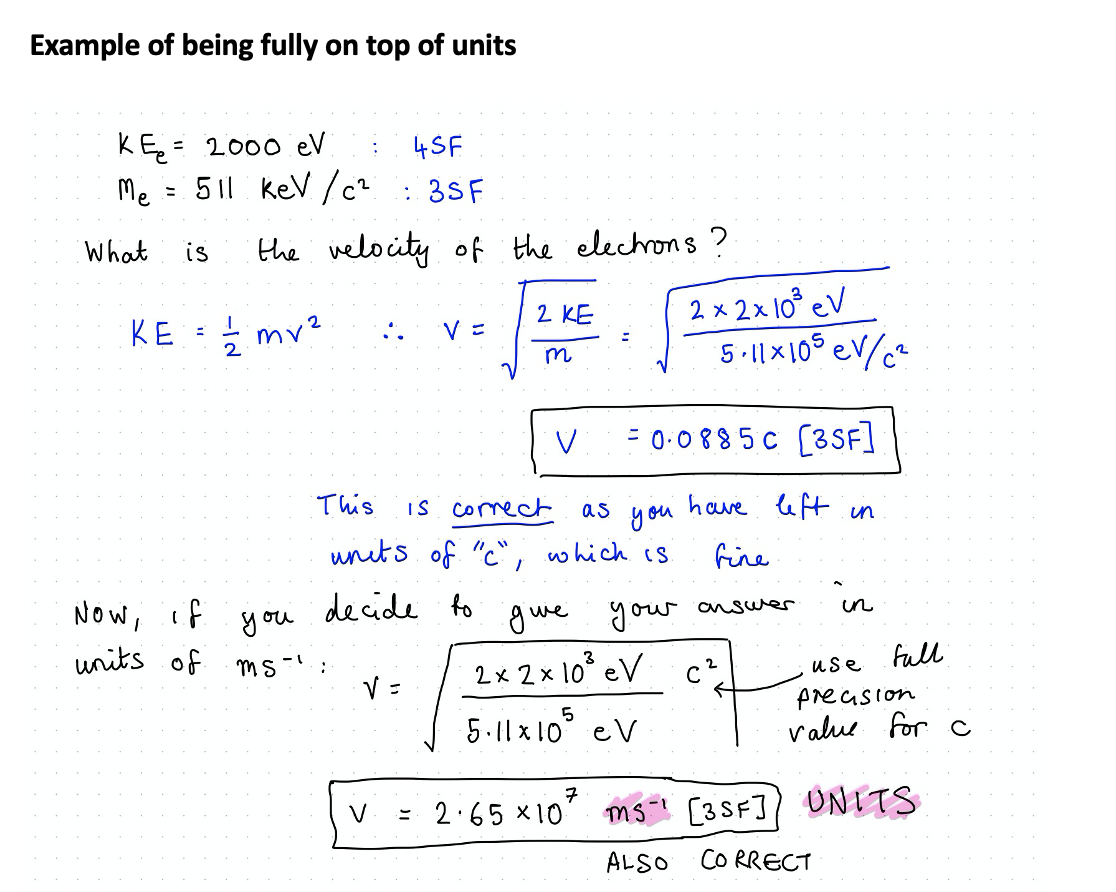 Example of being fully on top of units
KEₑ = 2000 eV : 4SF
Mₑ = 511 keV/c² : 3SF
What is the velocity of the electrons?
KE = 1/2 mv² ∴ V = √(2 KE / m) = √(2 × 2×10³ eV / 5.11×10⁵ eV/c²)
V = 0.0885 c [3SF]
This is correct as you have left in
units of "c", which is fine
Now, if you decide to give your answer in
units of ms⁻¹:
V = √(2 × 2 × 10³ eV / 5.11×10⁵ eV c²)
use full
precision
value for c
V = 2.65 ×10⁷ ms⁻¹ [3SF] UNITS
ALSO CORRECT